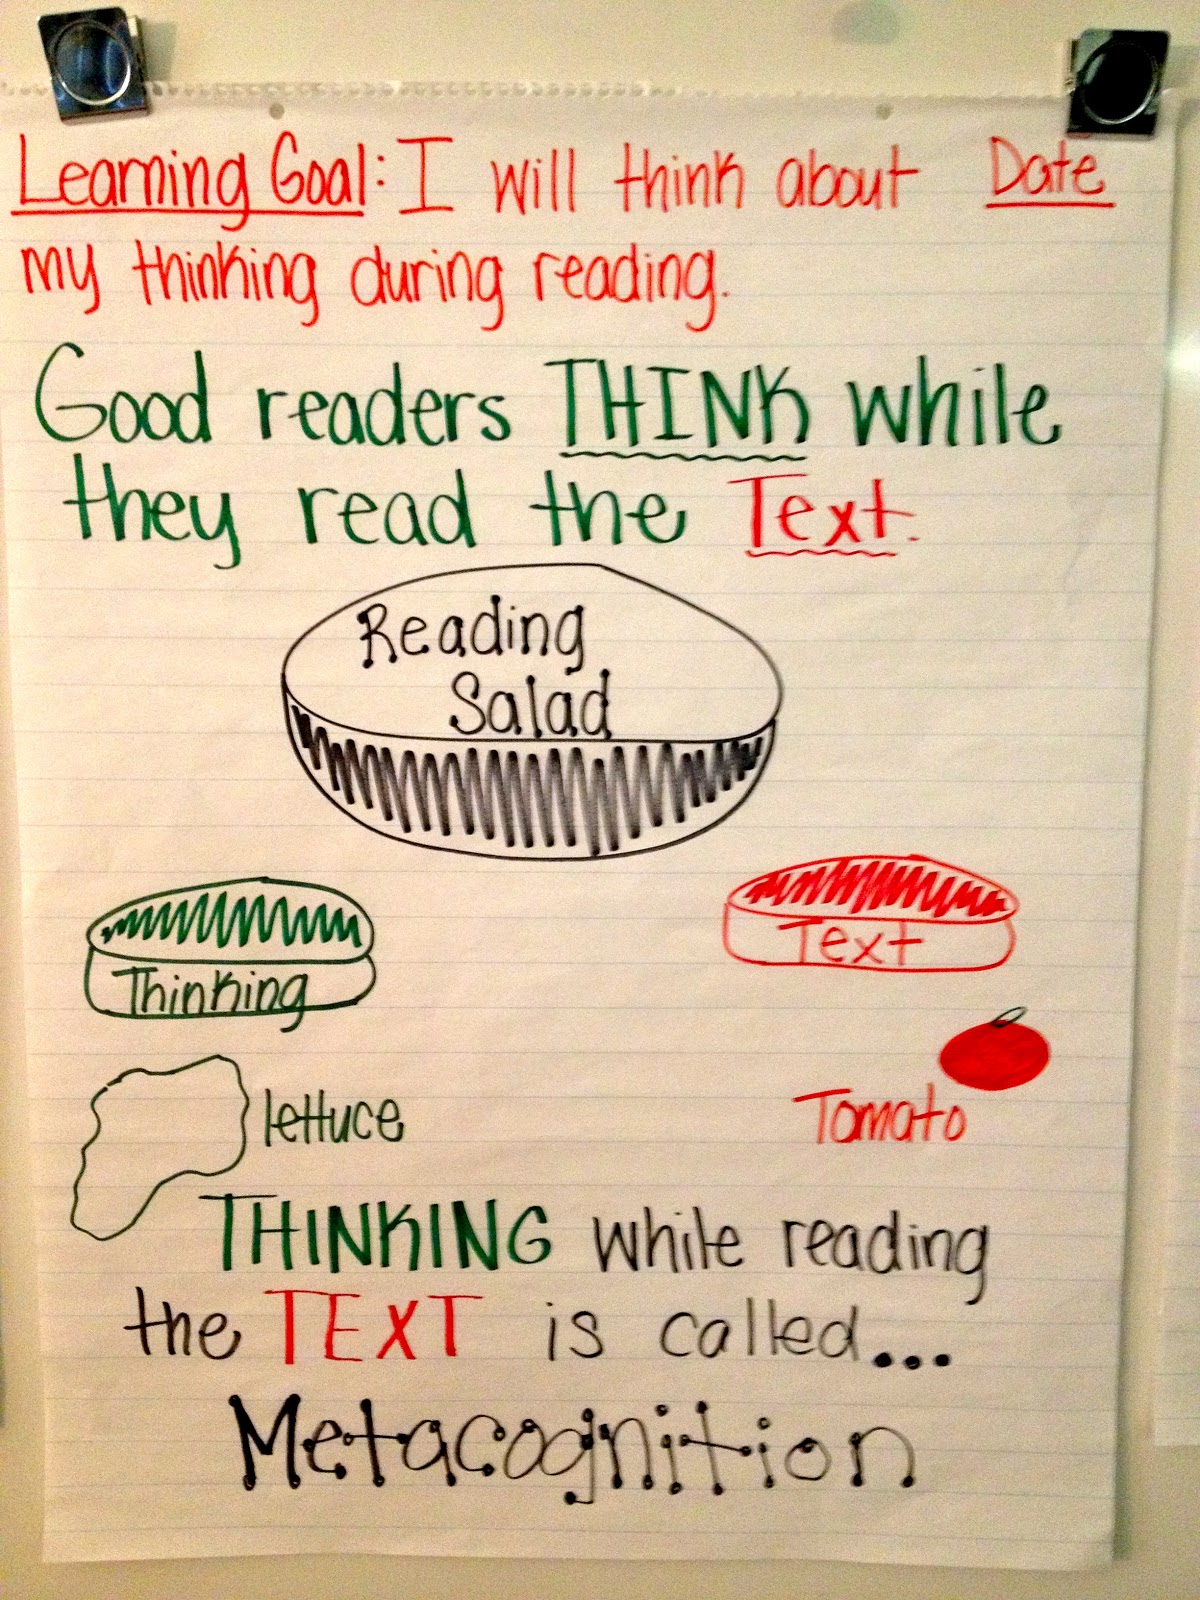 Learning Goal: I will think about Date
my thinking during reading.
Good readers THINK while
they read the Text.
Reading
Salad
Thinking
Text
lettuce
Tomato
THINKING while reading
the TEXT is called...
Metacognition